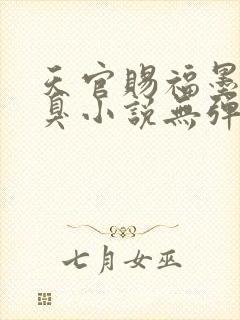 天官賜福墨
臭小説無彈
七月女巫